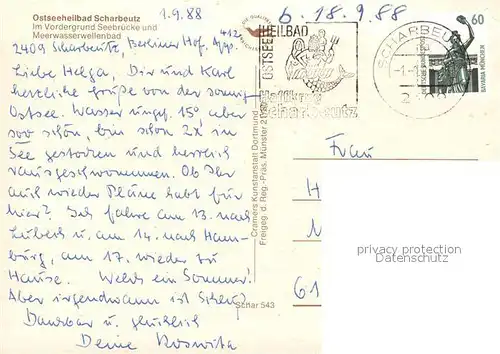 Ostseeheilbad Scharbeutz
Im Vordergrund Seebrücke und
Meerwasserwellenbad
1.9.88
b. 18.9.88
2409 Scharbeutz, Berliner Hof, 412
Liebe Helga, Dir und Karl
herzliche Grüße von der sonnig
Ostsee. Wasser ungf. 15°, aber
soo schön, bin schon 2x in
See gestochen und herrlich
rausgeschwommen. Ob Ihr
auch wieder Pläne habt für
hier? Ich fahre am 13. nach
Lübeck u. am 14. nach Ham-
burg, am 17. wieder zu
Hause. Welch ein Sommer!
Aber irgendwann ist Schluß!
Dankbar u. glücklich
Deine Roswita
Cramers Kunstanstalt Dortmund
Freigeg. d. Reg.-Präs. Münster
Schar 543
OSTSEE HEILBAD
Haffkrug
Scharbeutz
SCHARBEUTZ
60
BAVARIA MÜNCHEN
Frau
H
N
61
privacy protection
Datenschutz